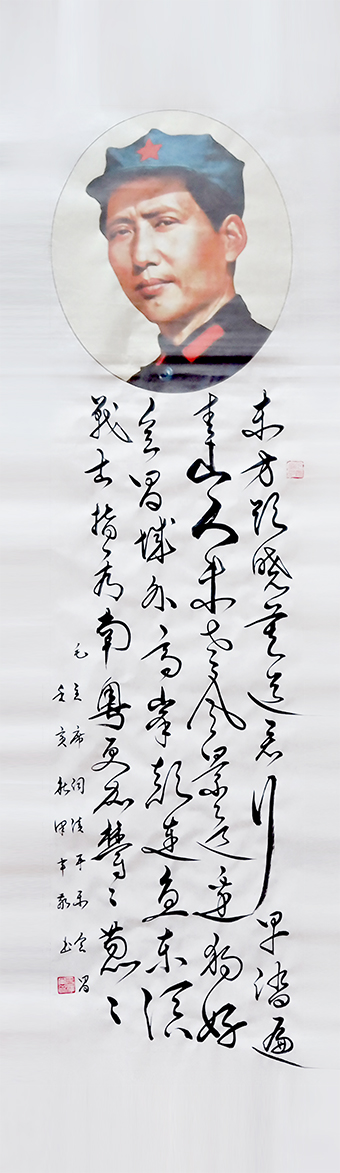 东方欲晓莫道君行早踏遍
青山人未老风景这边独好
会昌城外高峰颠连直东溟
战士指看南粤更加郁々葱々
毛主席词清平乐会昌
亥秋